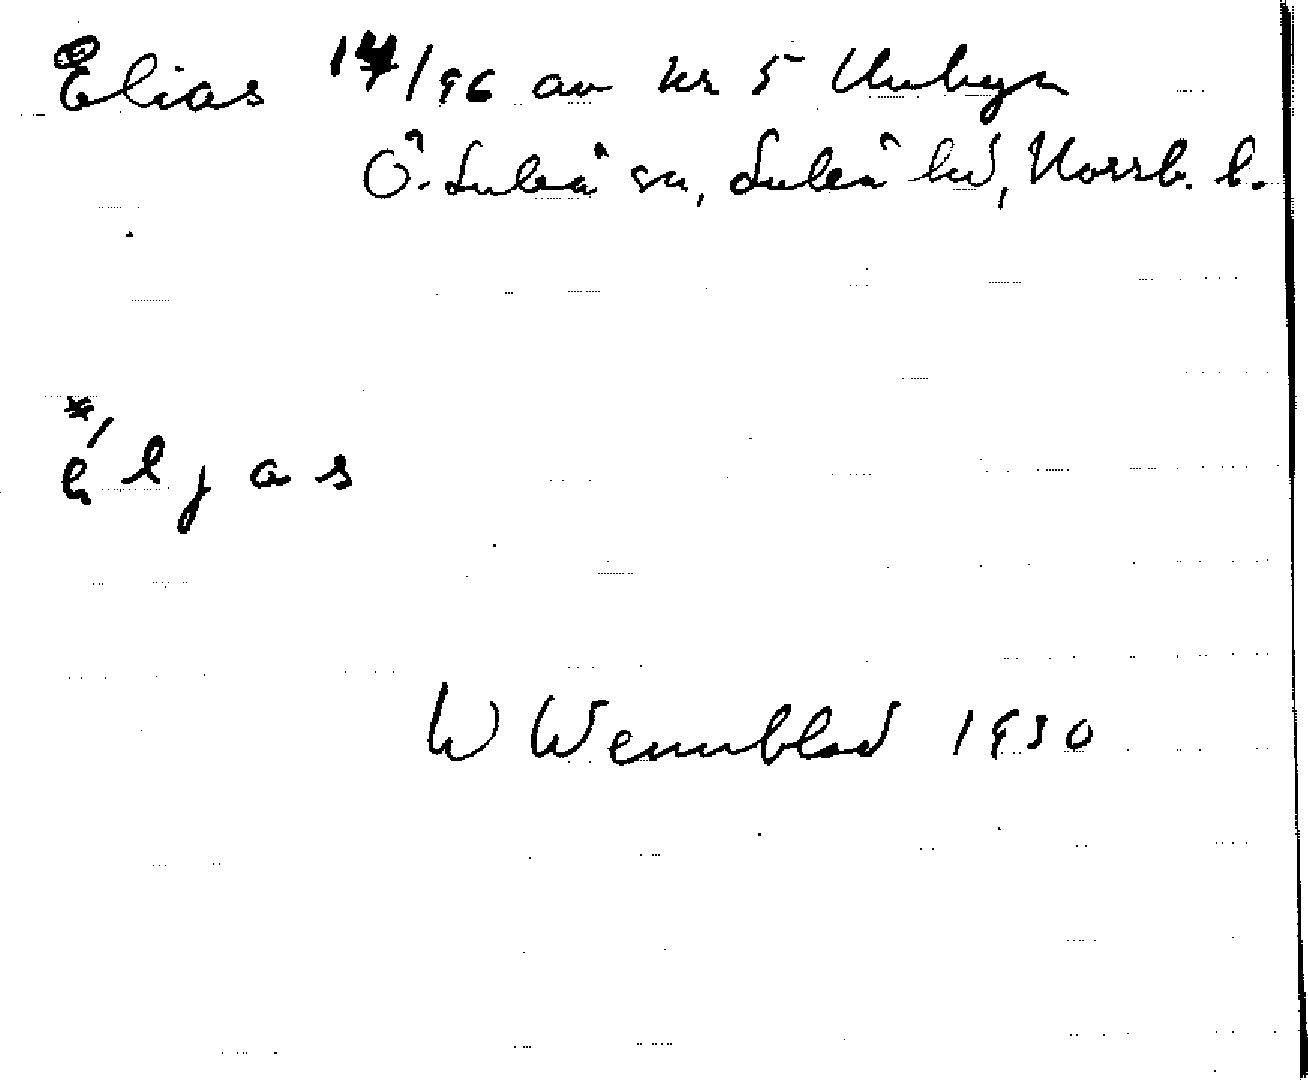 Elias 17/96 av nr 5 Unbyn
Ö. Luleå sn, Luleå hd, Norrb. l.
* é l j a s
W Wennblad 1930